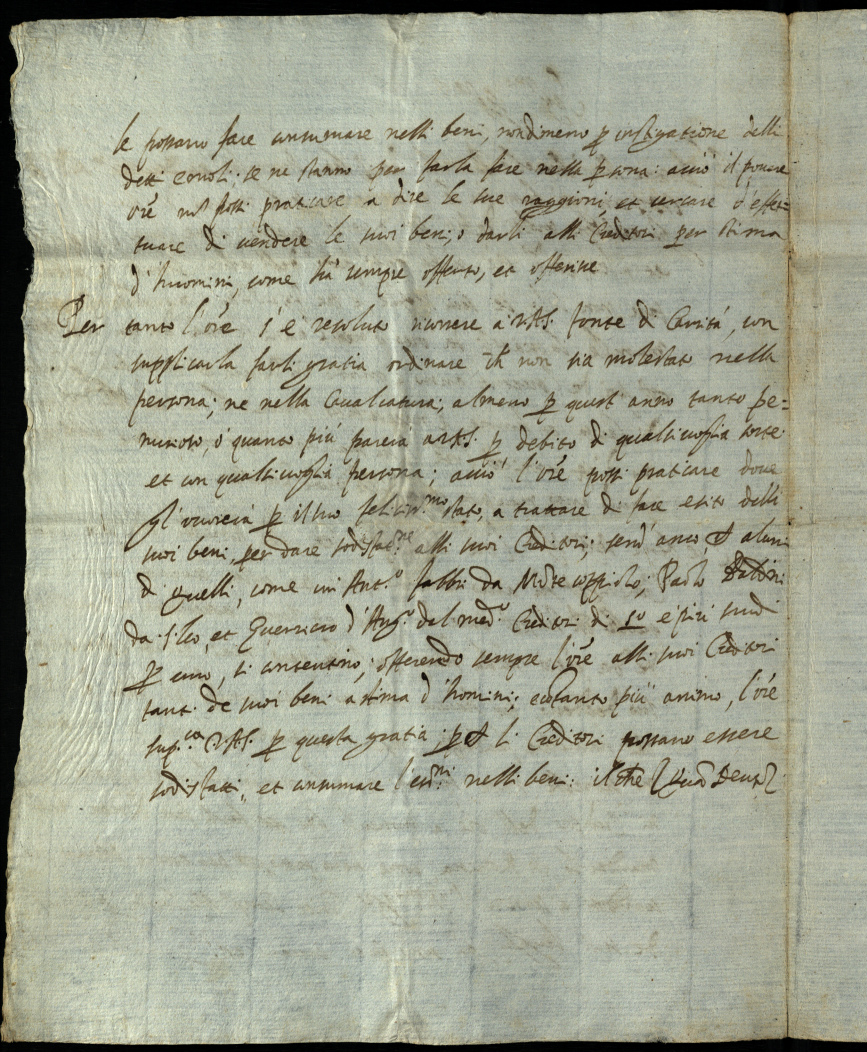 le possano fare consumare nelli beni, nondimeno p instigatione delli
detti emoli se ne stanno per farla fare nella persona: acciò il povere
ore non possi praticare a dire le sue raggioni, et cercare d'effet=
tuare di vendere le suoi beni, o darli alli Creditori per stima
d'huomini, come hà sempre offerto, et offerisce
Per tanto l'ore s'è resoluto ricorrere a V.A.S. fonte di Carità, con
supplicarla farli gratia ordinare ch non sia molestato nella
persona; ne nella Cavalcatura; almeno p quest'anno tanto pe=
nurioso, ò quanto più parerà a V.A.S. p debito di qualsivoglia sorte
et con qualsivoglia persona; acciò l'ore possi praticare dove
gl'occorerà p il suo felicissmo stato, a trattare di fare esito delli
suoi beni, per dare sodisfatne alli suoi Creditori; send'anco, alcuni
di quelli, come un Anto fabbri da Paolo
da S. Leo, et Guerriero d'Ango dal medo Creditori di e più scudi
p uno, si contentino; offerendo sempre l'ore alli suoi Creditori
tanti de suoi beni a stima d'homini; più animo, l'ore
supca V.A.S. p questa gratia; li Creditori possano essere
sodisfatti, et consumare nelli beni: il che quam Deus